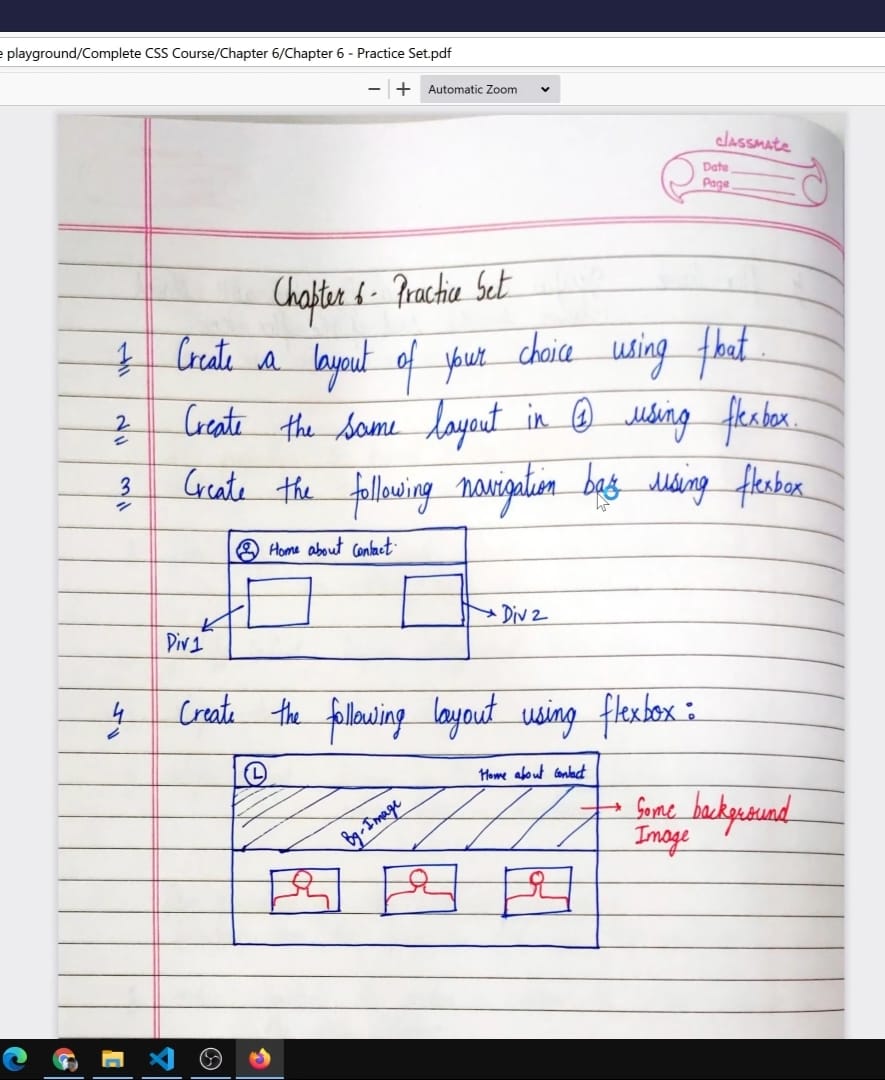 e playground/Complete CSS Course/Chapter 6/Chapter 6 - Practice Set.pdf
− + Automatic Zoom
classmate
Date
Page
Chapter 6 - Practice Set
1 Create a layout of your choice using float.
2 Create the same layout in ① using flexbox.
3 Create the following navigation bar using flexbox
Home about Contact
Div 2
Div 1
4 Create the following layout using flexbox :
L Home about Contact
Bg-Image
Some background
Image